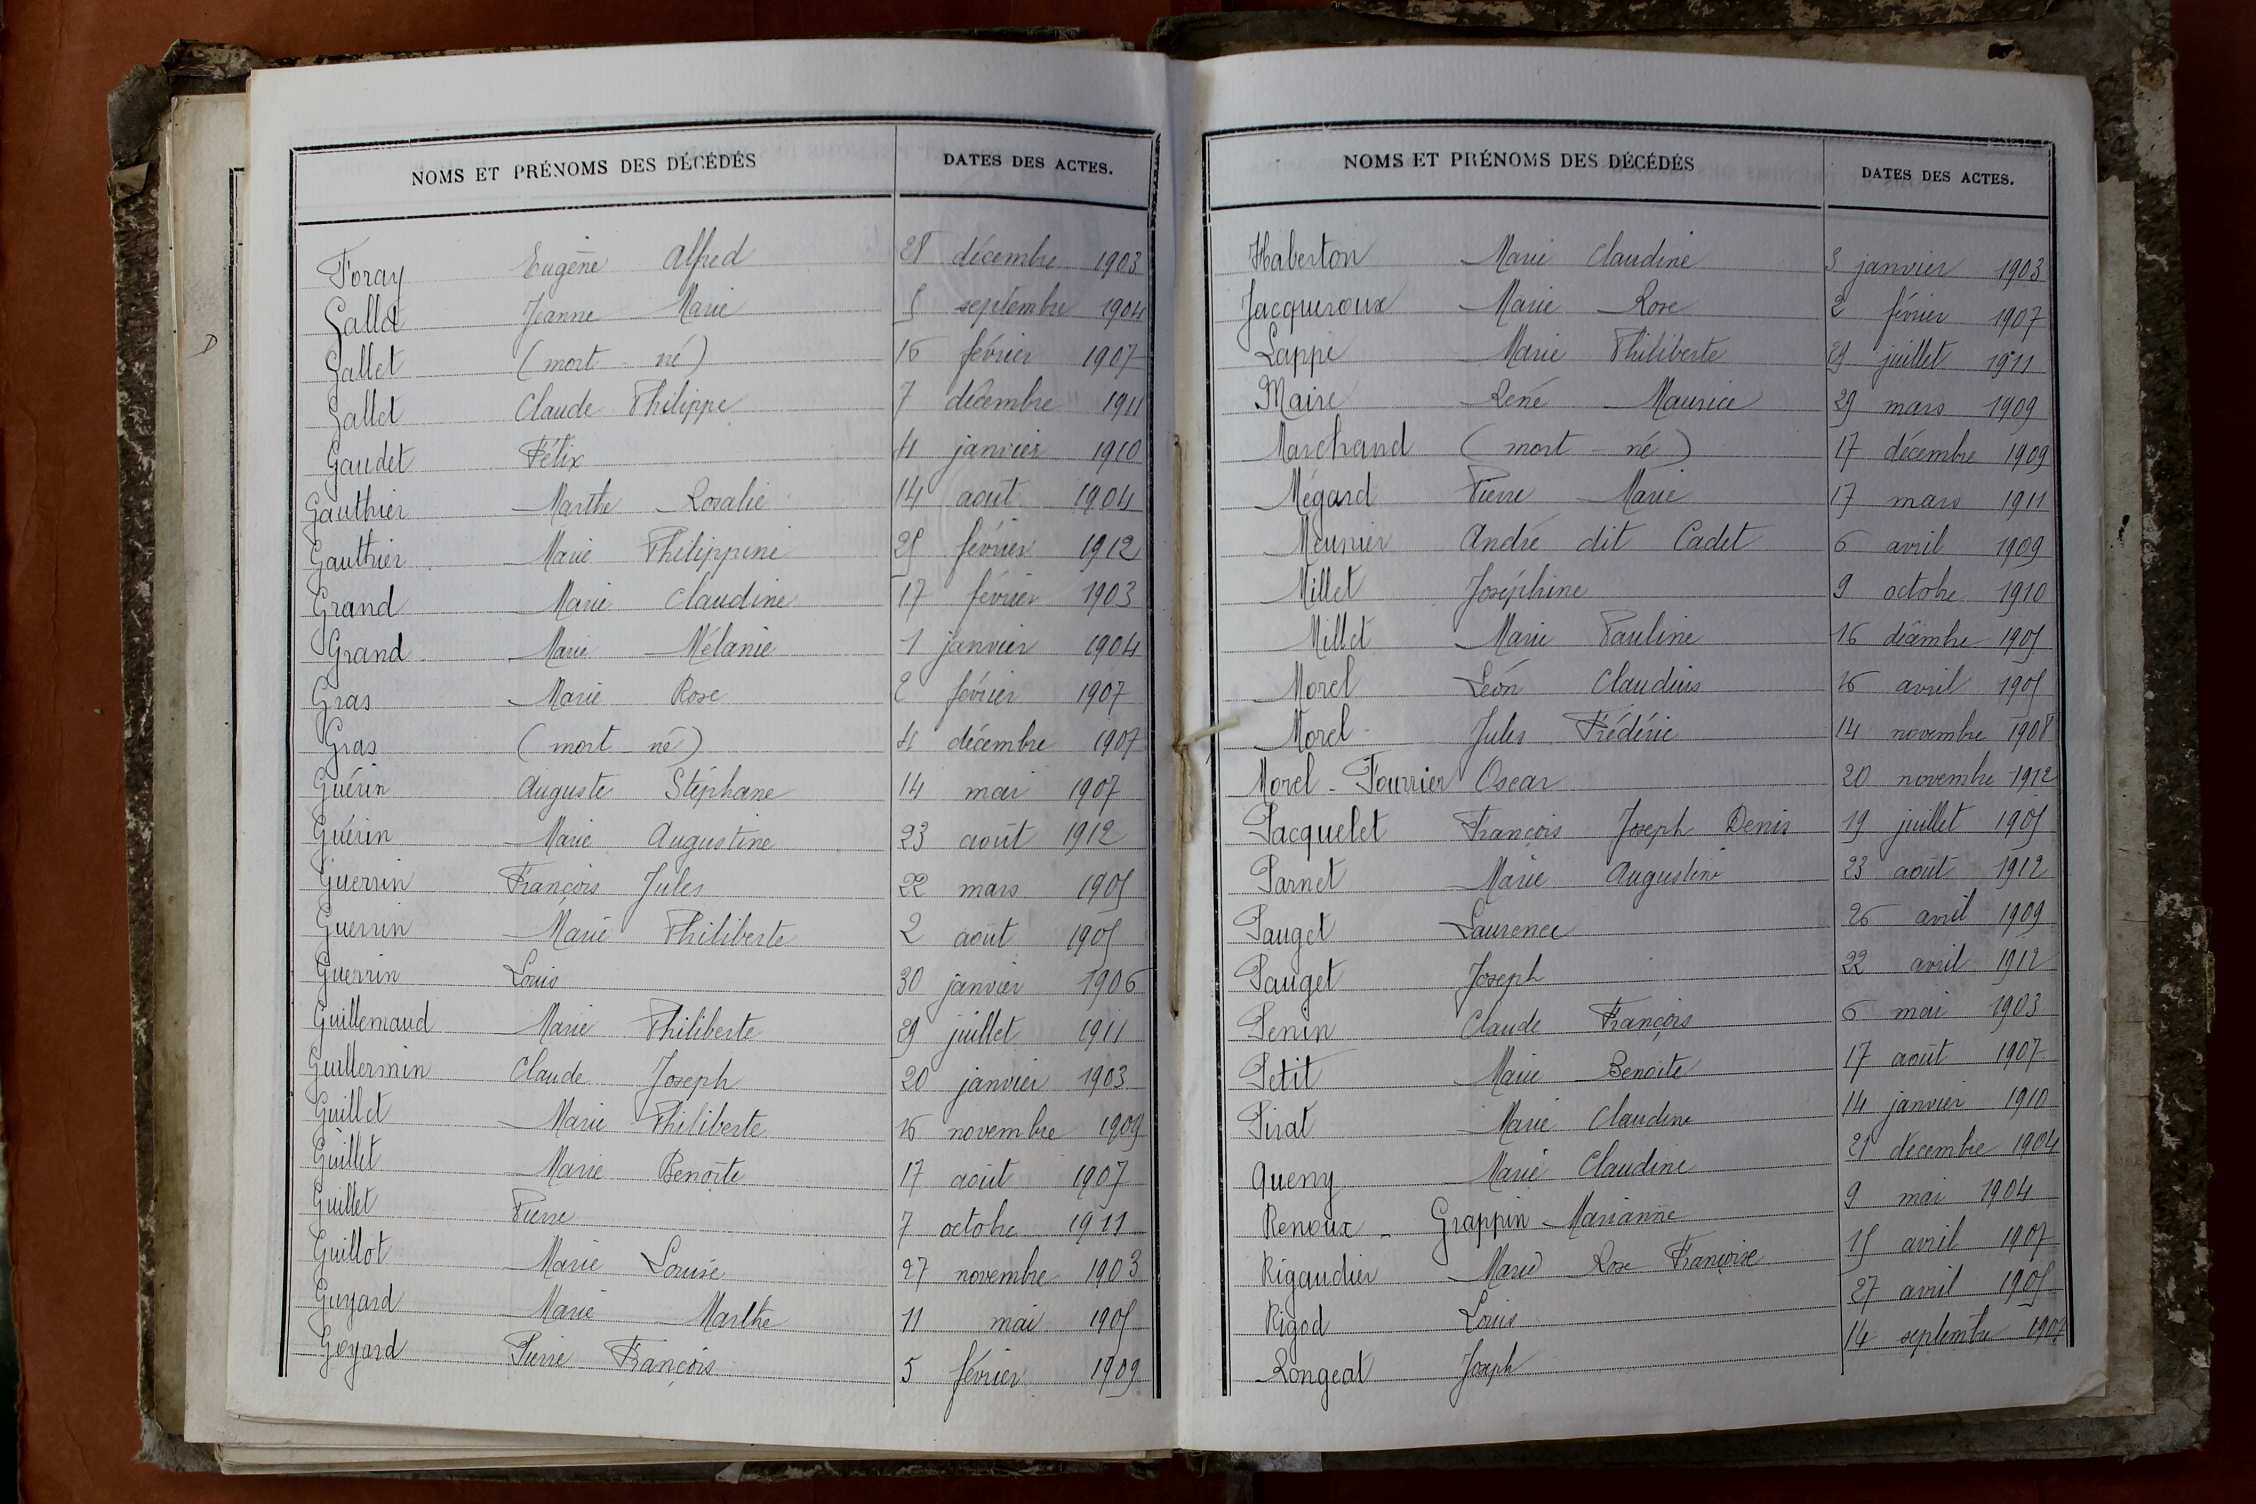 NOMS ET PRÉNOMS DES DÉCÉDÉS DATES DES ACTES.
Foray Eugène Alfred 28 décembre 1903
Gallet Jeanne Marie 5 septembre 1904
Gallet (mort-né) 16 février 1907
Gallet Claude Philippe 7 décembre 1911
Gaudet Félix 4 janvier 1910
Gauthier Marthe Rosalie 14 août 1904
Gauthier Marie Philippine 25 février 1912
Grand Marie Claudine 17 février 1903
Grand Marie Mélanie 1 janvier 1904
Gras Marie Rose 2 février 1907
Gras (mort-né) 4 décembre 1907
Guérin Auguste Stéphane 14 mai 1907
Guérin Marie Augustine 23 août 1912
Guerrin François Jules 22 mars 1905
Guerrin Marie Philiberte 2 août 1905
Guerrin Louis 30 janvier 1906
Guillemaud Marie Philiberte 29 juillet 1911
Guillermin Claude Joseph 20 janvier 1903
Guillet Marie Philiberte 16 novembre 1909
Guillet Marie Benoîte 17 août 1907
Guillet Pierre 7 octobre 1911
Guillot Marie Louise 27 novembre 1903
Guyard Marie Marthe 11 mai 1905
Goyard Pierre François 5 février 1909
NOMS ET PRÉNOMS DES DÉCÉDÉS DATES DES ACTES.
Haberton Marie Claudine 3 janvier 1903
Jacqueroux Marie Rose 2 février 1907
Lappe Marie Philiberte 29 juillet 1911
Maire René Maurice 29 mars 1909
Marchand (mort-né) 17 décembre 1909
Mégard Pierre Marie 17 mars 1911
Meunier André dit Cadet 6 avril 1909
Millet Joséphine 9 octobre 1910
Millet Marie Pauline 16 décembre 1905
Morel Léon Claudius 26 avril 1905
Morel Jules Frédéric 14 novembre 1908
Morel-Fourrier Oscar 20 novembre 1912
Pacquelet François Joseph Denis 19 juillet 1905
Parnet Marie Augustine 23 août 1912
Pauget Laurence 26 avril 1909
Pauget Joseph 22 avril 1912
Penin Claude François 6 mai 1903
Petit Marie Benoîte 17 août 1907
Pirat Marie Claudine 14 janvier 1910
Queny Marie Claudine 21 décembre 1904
Renoux - Grappin Marianne 9 mai 1904
Rigaudier Marie Rose Françoise 15 avril 1907
Rigod Louis 27 avril 1905
Rongeat Joseph 14 septembre